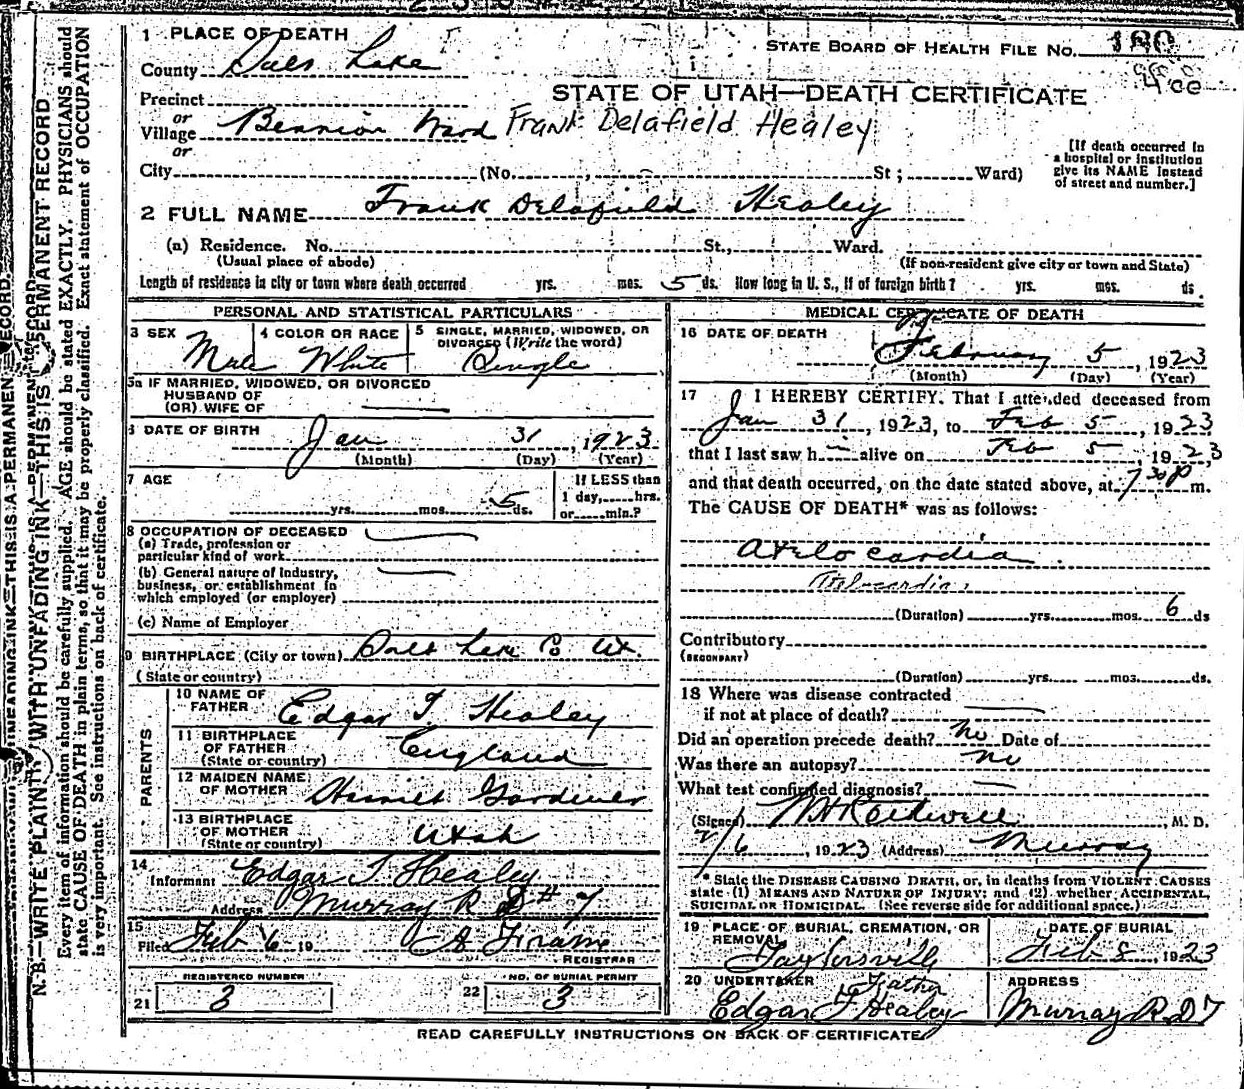 1 PLACE OF DEATH
STATE BOARD OF HEALTH FILE No. 180
County Salt Lake
Precinct
STATE OF UTAH—DEATH CERTIFICATE
or
Village Bennion Ward Frank Delafield Healey
or
[If death occurred in
a hospital or institution
give its NAME instead
of street and number.]
City (No. , St ; Ward)
2 FULL NAME Frank Delafield Healey
(a) Residence. No. St., Ward.
(Usual place of abode) (If non-resident give city or town and State)
Length of residence in city or town where death occurred yrs. mos. 5 ds. How long in U. S., if of foreign birth? yrs. mos. ds.
PERSONAL AND STATISTICAL PARTICULARS
3 SEX Male
4 COLOR OR RACE White
5 SINGLE, MARRIED, WIDOWED, OR
DIVORCED (Write the word)
Single
5a IF MARRIED, WIDOWED, OR DIVORCED
HUSBAND OF
(OR) WIFE OF
6 DATE OF BIRTH Jan 31, 1923
(Month) (Day) (Year)
7 AGE
yrs. mos. 5 ds.
If LESS than
1 day, hrs.
or min.?
8 OCCUPATION OF DECEASED
(a) Trade, profession or
particular kind of work
(b) General nature of industry,
business, or establishment in
which employed (or employer)
(c) Name of Employer
9 BIRTHPLACE (City or town) Salt Lake Co Ut.
(State or country)
PARENTS
10 NAME OF
FATHER Edgar T. Healey
11 BIRTHPLACE
OF FATHER England
(State or country)
12 MAIDEN NAME
OF MOTHER Harriet Gardiner
13 BIRTHPLACE
OF MOTHER Utah
(State or country)
14
Informant Edgar T Healey
Address Murray R D # 7
15
Filed Feb 6 19
REGISTRAR
REGISTERED NUMBER
21 3
NO. OF BURIAL PERMIT
22 3
MEDICAL CERTIFICATE OF DEATH
16 DATE OF DEATH
February 5, 1923
(Month) (Day) (Year)
17 I HEREBY CERTIFY. That I attended deceased from
Jan 31, 1923, to Feb 5, 1923
that I last saw h alive on Feb 5, 1923
and that death occurred, on the date stated above, at 7 30 P m.
The CAUSE OF DEATH* was as follows:
Atelo cardia
(Duration) yrs. mos. 6 ds
Contributory
(SECONDARY)
(Duration) yrs. mos. ds.
18 Where was disease contracted
if not at place of death?
Did an operation precede death? No Date of
Was there an autopsy? no
What test confirmed diagnosis?
(Signed) , M. D.
2/6, 1923 (Address) Murray
* State the DISEASE CAUSING DEATH, or, in deaths from VIOLENT CAUSES
state (1) MEANS AND NATURE OF INJURY; and (2) whether ACCIDENTAL
SUICIDAL OR HOMICIDAL. (See reverse side for additional space.)
19 PLACE OF BURIAL, CREMATION, OR
REMOVAL
Taylorsville
DATE OF BURIAL
Feb 8, 1923
20 UNDERTAKER Father
Edgar T Healey
ADDRESS
Murray R D 7
READ CAREFULLY INSTRUCTIONS ON BACK OF CERTIFICATE
N. B.—WRITE PLAINLY WITH UNFADING INK—THIS IS A PERMANENT RECORD
Every item of information should be carefully supplied. AGE should be stated EXACTLY. PHYSICIANS should
state CAUSE OF DEATH in plain terms, so that it may be properly classified. Exact statement of OCCUPATION
is very important. See instructions on back of certificate.